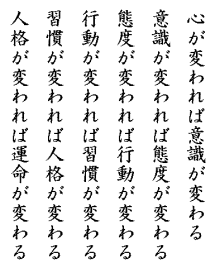 心が変われば意識が変わる
意識が変われば態度が変わる
態度が変われば行動が変わる
行動が変われば習慣が変わる
習慣が変われば人格が変わる
人格が変われば運命が変わる